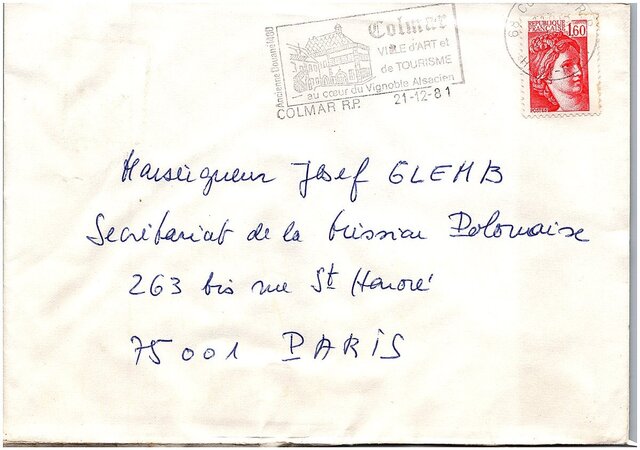 Ancienne Douane 1480
Colmar
VILLE d'ART et
de TOURISME
au cœur du Vignoble Alsacien
COLMAR R.P. 21-12-81
REPUBLIQUE
FRANÇAISE 1,60
Monseigneur Josef GLEMB
Secrétariat de la Mission Polonaise
263 bis rue St Honoré
75001 PARIS